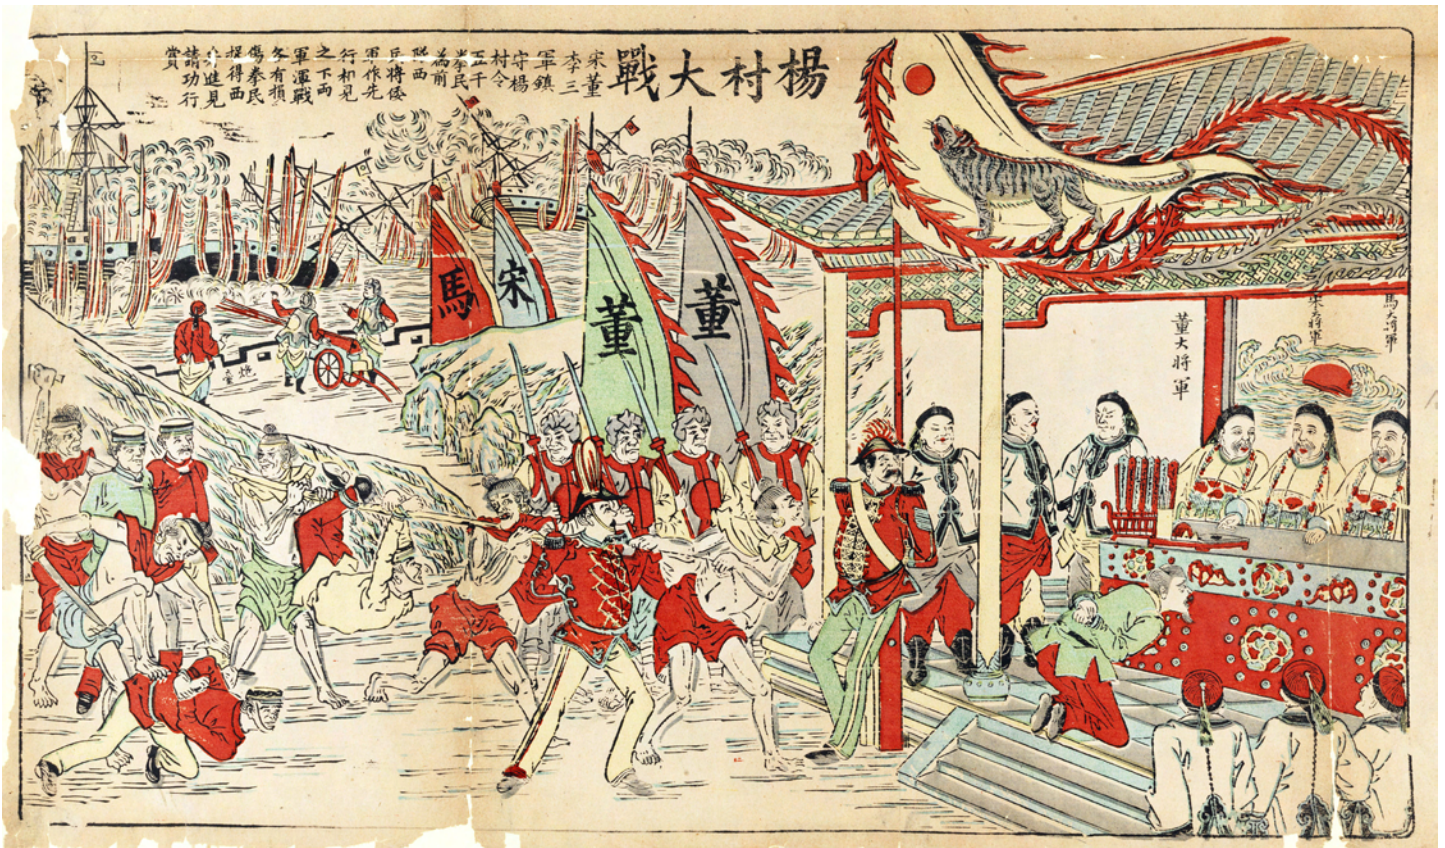 楊村大戰
宋董
李三
軍鎮
守楊
村令
五千
拳民
為前
隊西
兵將倭
軍作先
行和見
之下兩
軍渾戰
各有損
傷拳民
捉得西
進見
請功行
賞
馬大將軍
宋大將軍
董大將軍
董
董
宋
馬
炮臺